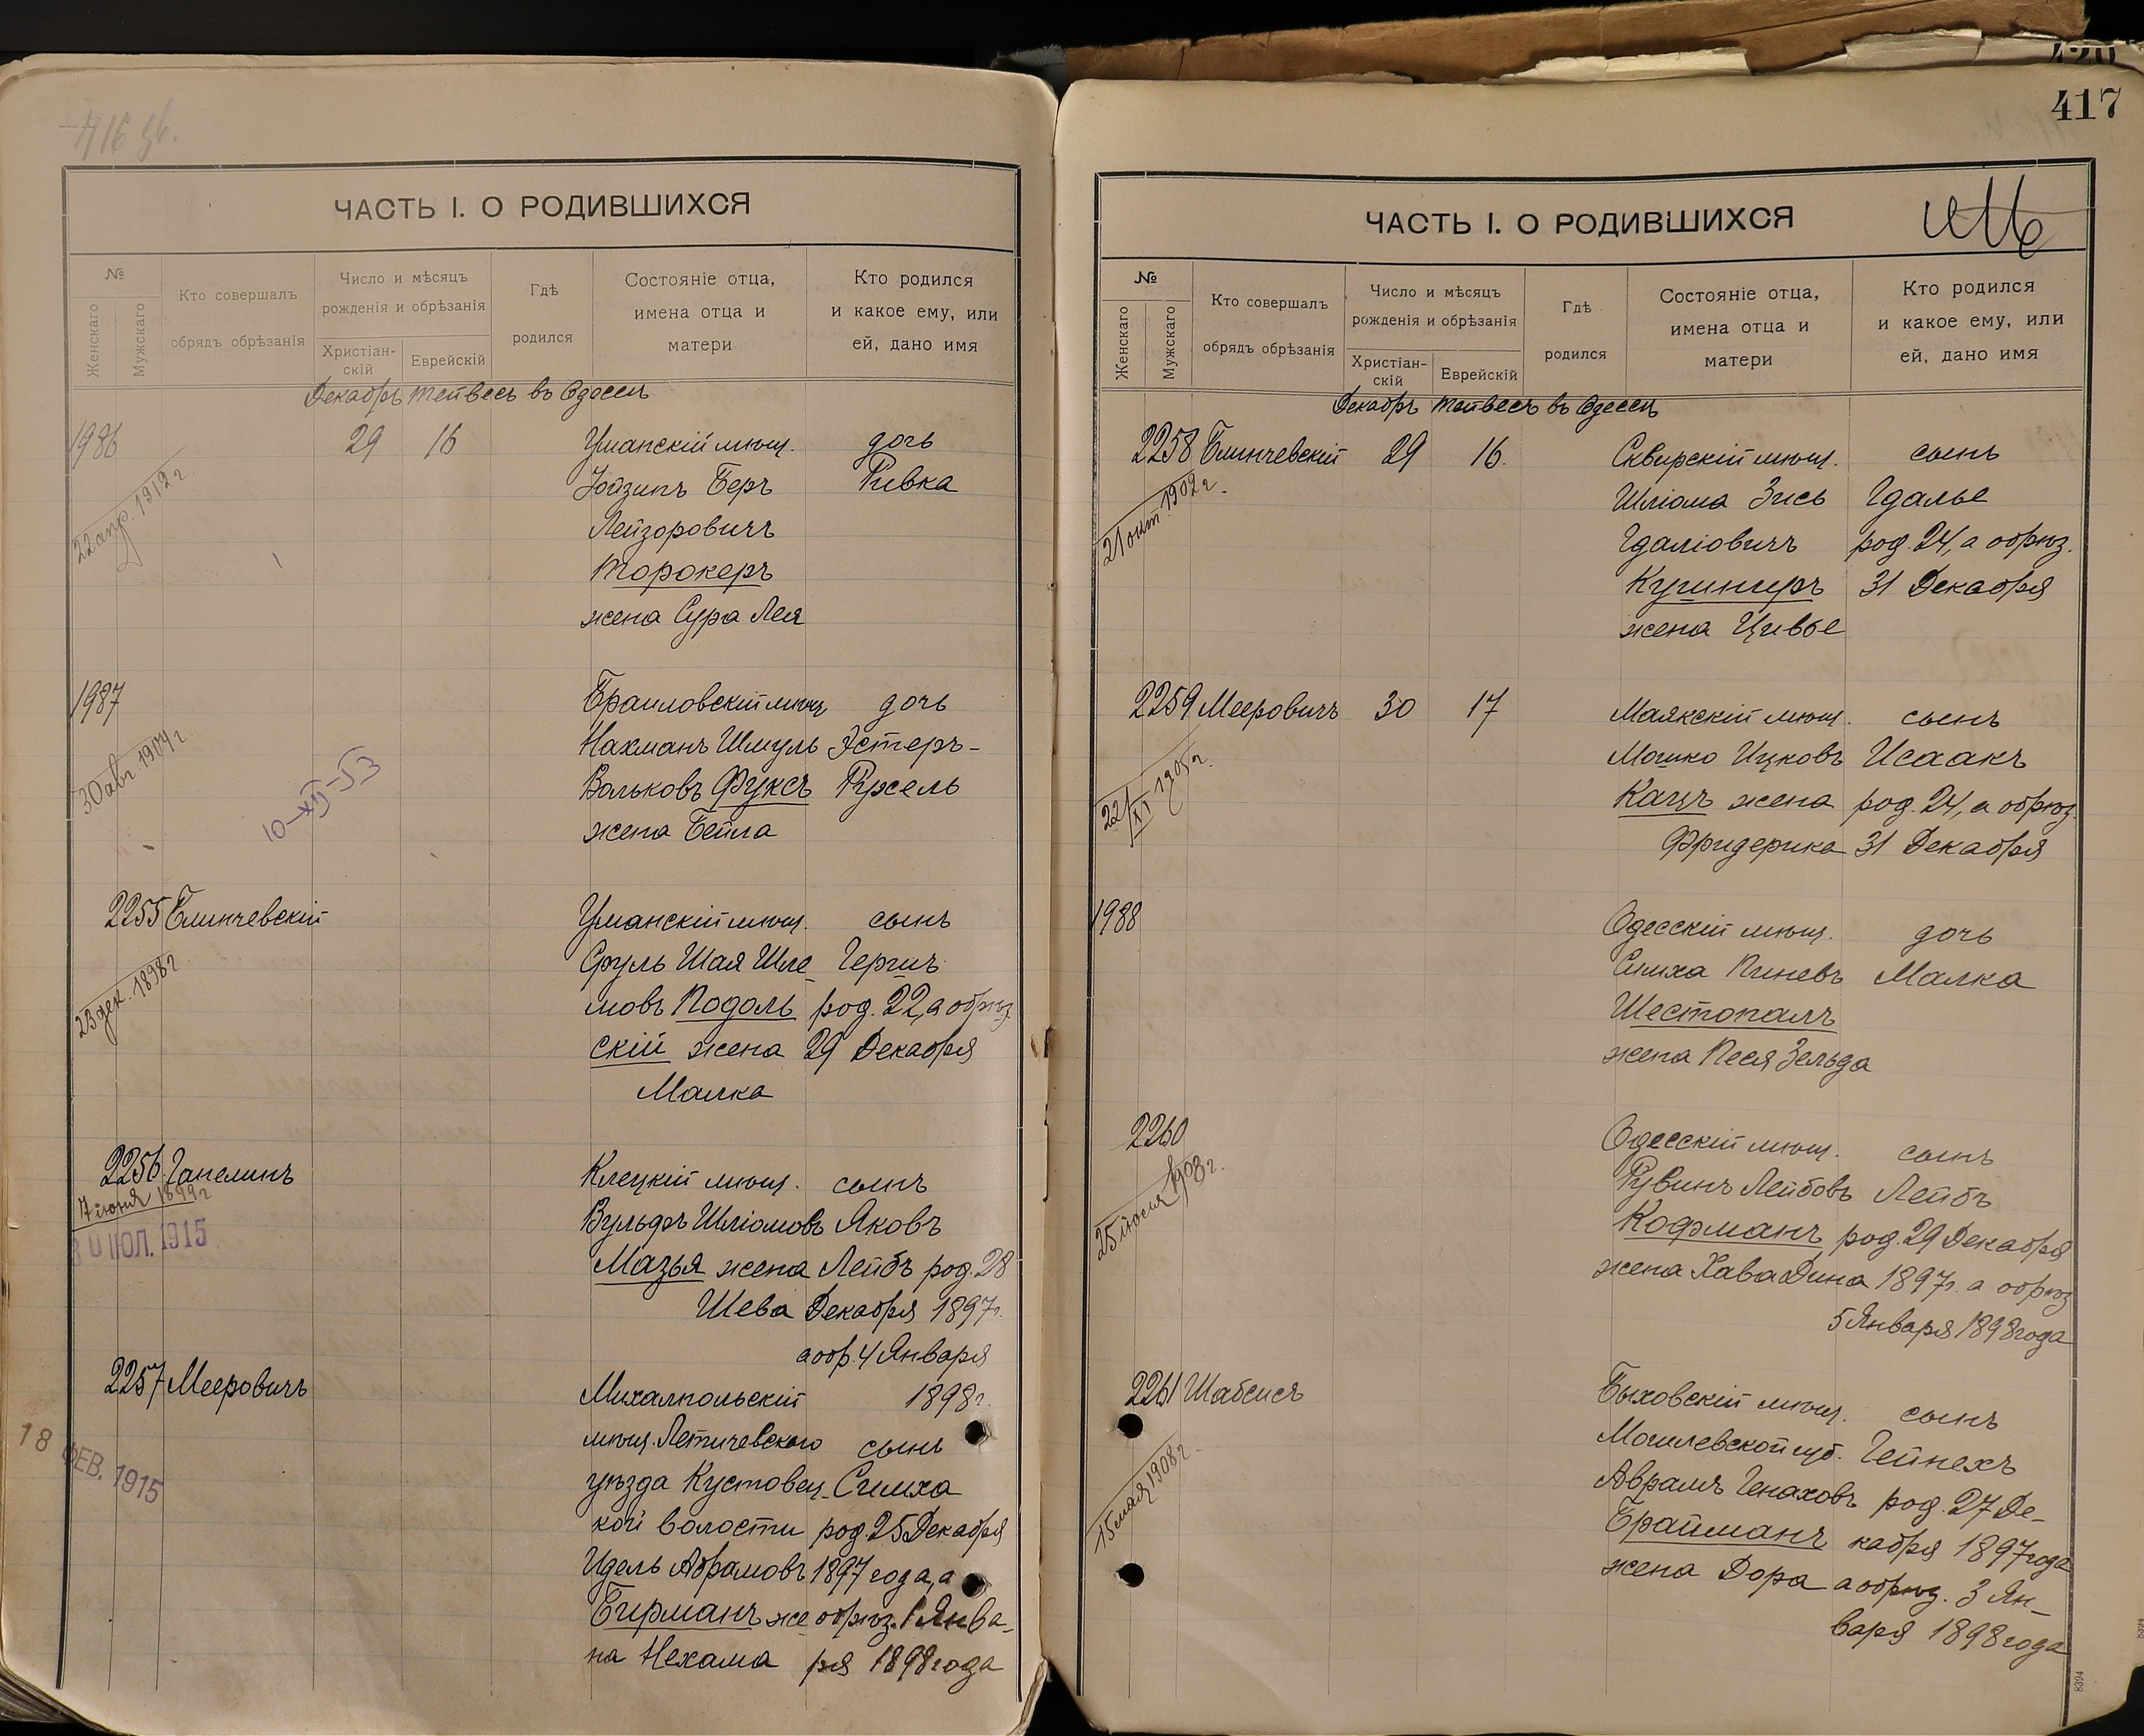 416 об.
ЧАСТЬ I. О РОДИВШИХСЯ
№
Женскаго
Мужскаго
Кто совершалъ
обрядъ обрѣзанія
Число и мѣсяцъ
рожденія и обрѣзанія
Христіан-
скій
Еврейскій
Гдѣ
родился
Состояніе отца,
имена отца и
матери
Кто родился
и какое ему, или
ей, дано имя
Декабрь Тейвесъ въ Одессѣ
1986 29 16 Уманскій мѣщ. дочь
22 апр. 1912 г.
Іойзипъ Беръ Ривка
Лейзоровичъ
Торокеръ
жена Сура Лея
1987 Браиловскій мѣщ. дочь
30 авг. 1904 г.
10-XII-53
Нахманъ Шмуль Эстеръ-
Вольковъ Фуксъ Рухель
жена Бейла
2255 Блинчевскій Уманскій мѣщ. сынъ
23 дек. 1898 г.
Сруль Шая Шле- Гершъ
мовъ Подоль- род. 22, а обрѣз.
скій жена 29 Декабря
Малка
2256 Гапелинъ Клецкій мѣщ. сынъ
7 іюня 1899 г.
ІЮЛ. 1915
Вульфъ Шліомовъ Яковъ
Мазья жена Лейбъ род. 28
Шева Декабря 1897 г.
а обр. 4 Января
1898 г.
2257 Мееровичъ Михалпольскій
18 ФЕВ. 1915
мѣщ. Летичевскаго сынъ
уѣзда Кустовец- Симха
кой волости род. 25 Декабря
Идель Абрамовъ 1897 года, а
Бирманъ же- обрѣз. 1 Янва-
на Нехама ря 1898 года
417
ЧАСТЬ I. О РОДИВШИХСЯ
№
Женскаго
Мужскаго
Кто совершалъ
обрядъ обрѣзанія
Число и мѣсяцъ
рожденія и обрѣзанія
Христіан-
скій
Еврейскій
Гдѣ
родился
Состояніе отца,
имена отца и
матери
Кто родился
и какое ему, или
ей, дано имя
Декабрь Тейвесъ въ Одессѣ
2258 Блинчевскій 29 16. Сквирскій мѣщ. сынъ
21 окт. 1902 г.
Шліома Зись Гдалье
Гдаліовичъ род. 24, а обрѣз.
Кушниръ 31 Декабря
жена Цивье
2259 Мееровичъ 30 17 Маякскій мѣщ. сынъ
22/XI 1905 г.
Мошко Ицковъ Исаакъ
Кацъ жена род. 24, а обрѣз.
Фридерика 31 Декабря
1988 Одесскій мѣщ. дочь
Симха Пиневъ Малка
Шестопалъ
жена Песя Зельда
2260 Одесскій мѣщ. сынъ
25 іюля 1903 г.
Рувинъ Лейбовъ Лейбъ
Кофманъ род. 29 Декабря
жена Хава Дина 1897 г. а обрѣз.
5 Января 1898 года
2261 Шабсисъ Быховскій мѣщ. сынъ
15 мая 1908 г.
Могилевской губ. Гейнехъ
Аврамъ Генаховъ род. 27 Де-
Брайманъ кабря 1897 года
жена Дора а обрѣз. 3 Ян-
варя 1898 года
8394